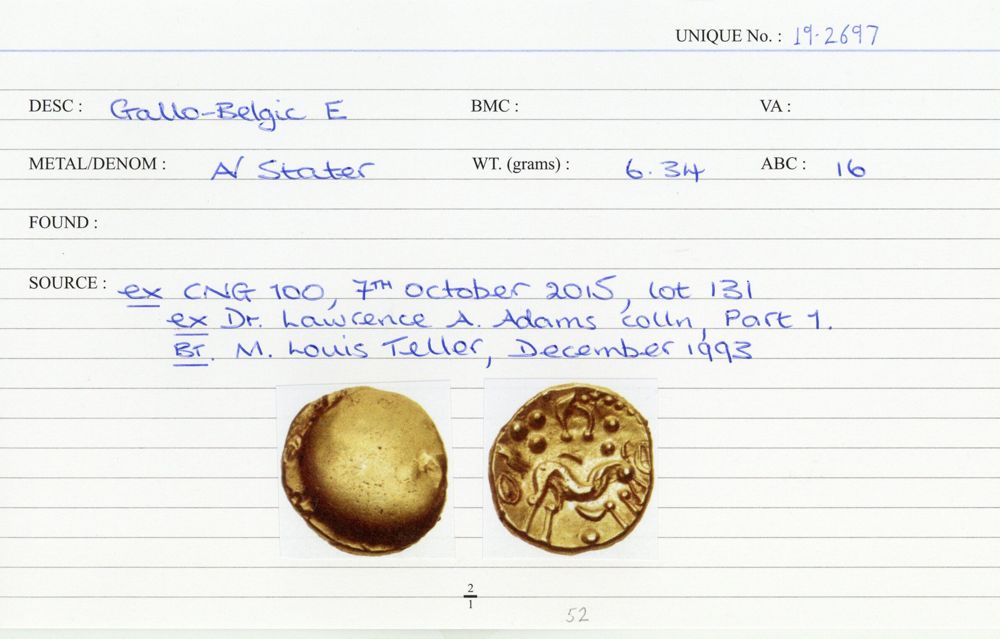 UNIQUE No. : 19.2697
DESC : Gallo-Belgic E BMC : VA :
METAL/DENOM : A/ Stater WT. (grams) : 6.34 ABC : 16
FOUND :
SOURCE : ex CNG 100, 7TH October 2015, lot 131
ex Dr. Lawrence A. Adams colln, Part 1.
BT. M. Louis Teller, December 1993
2
1
52